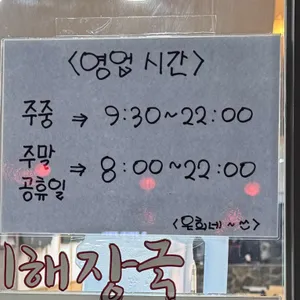 <영업 시간>
주중 ⇒ 9:30~22:00
주말
공휴일 ⇒ 8:00~22:00
<은희네~
해장국